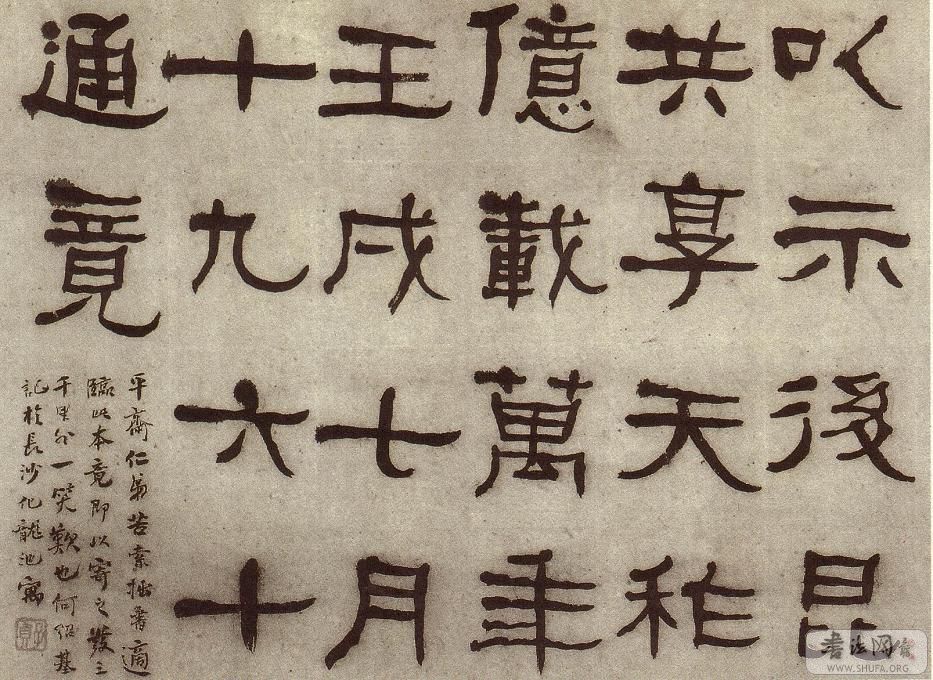 㕥示後昆
共享天秨
億載萬年
王戌七月
十九六十
通竟
平齋仁弟苦索拙書適
臨此本竟即以寄之發三
千里外一笑歎也何紹基
記於長沙化龍池寓
书法网
WWW.SHUFA.ORG